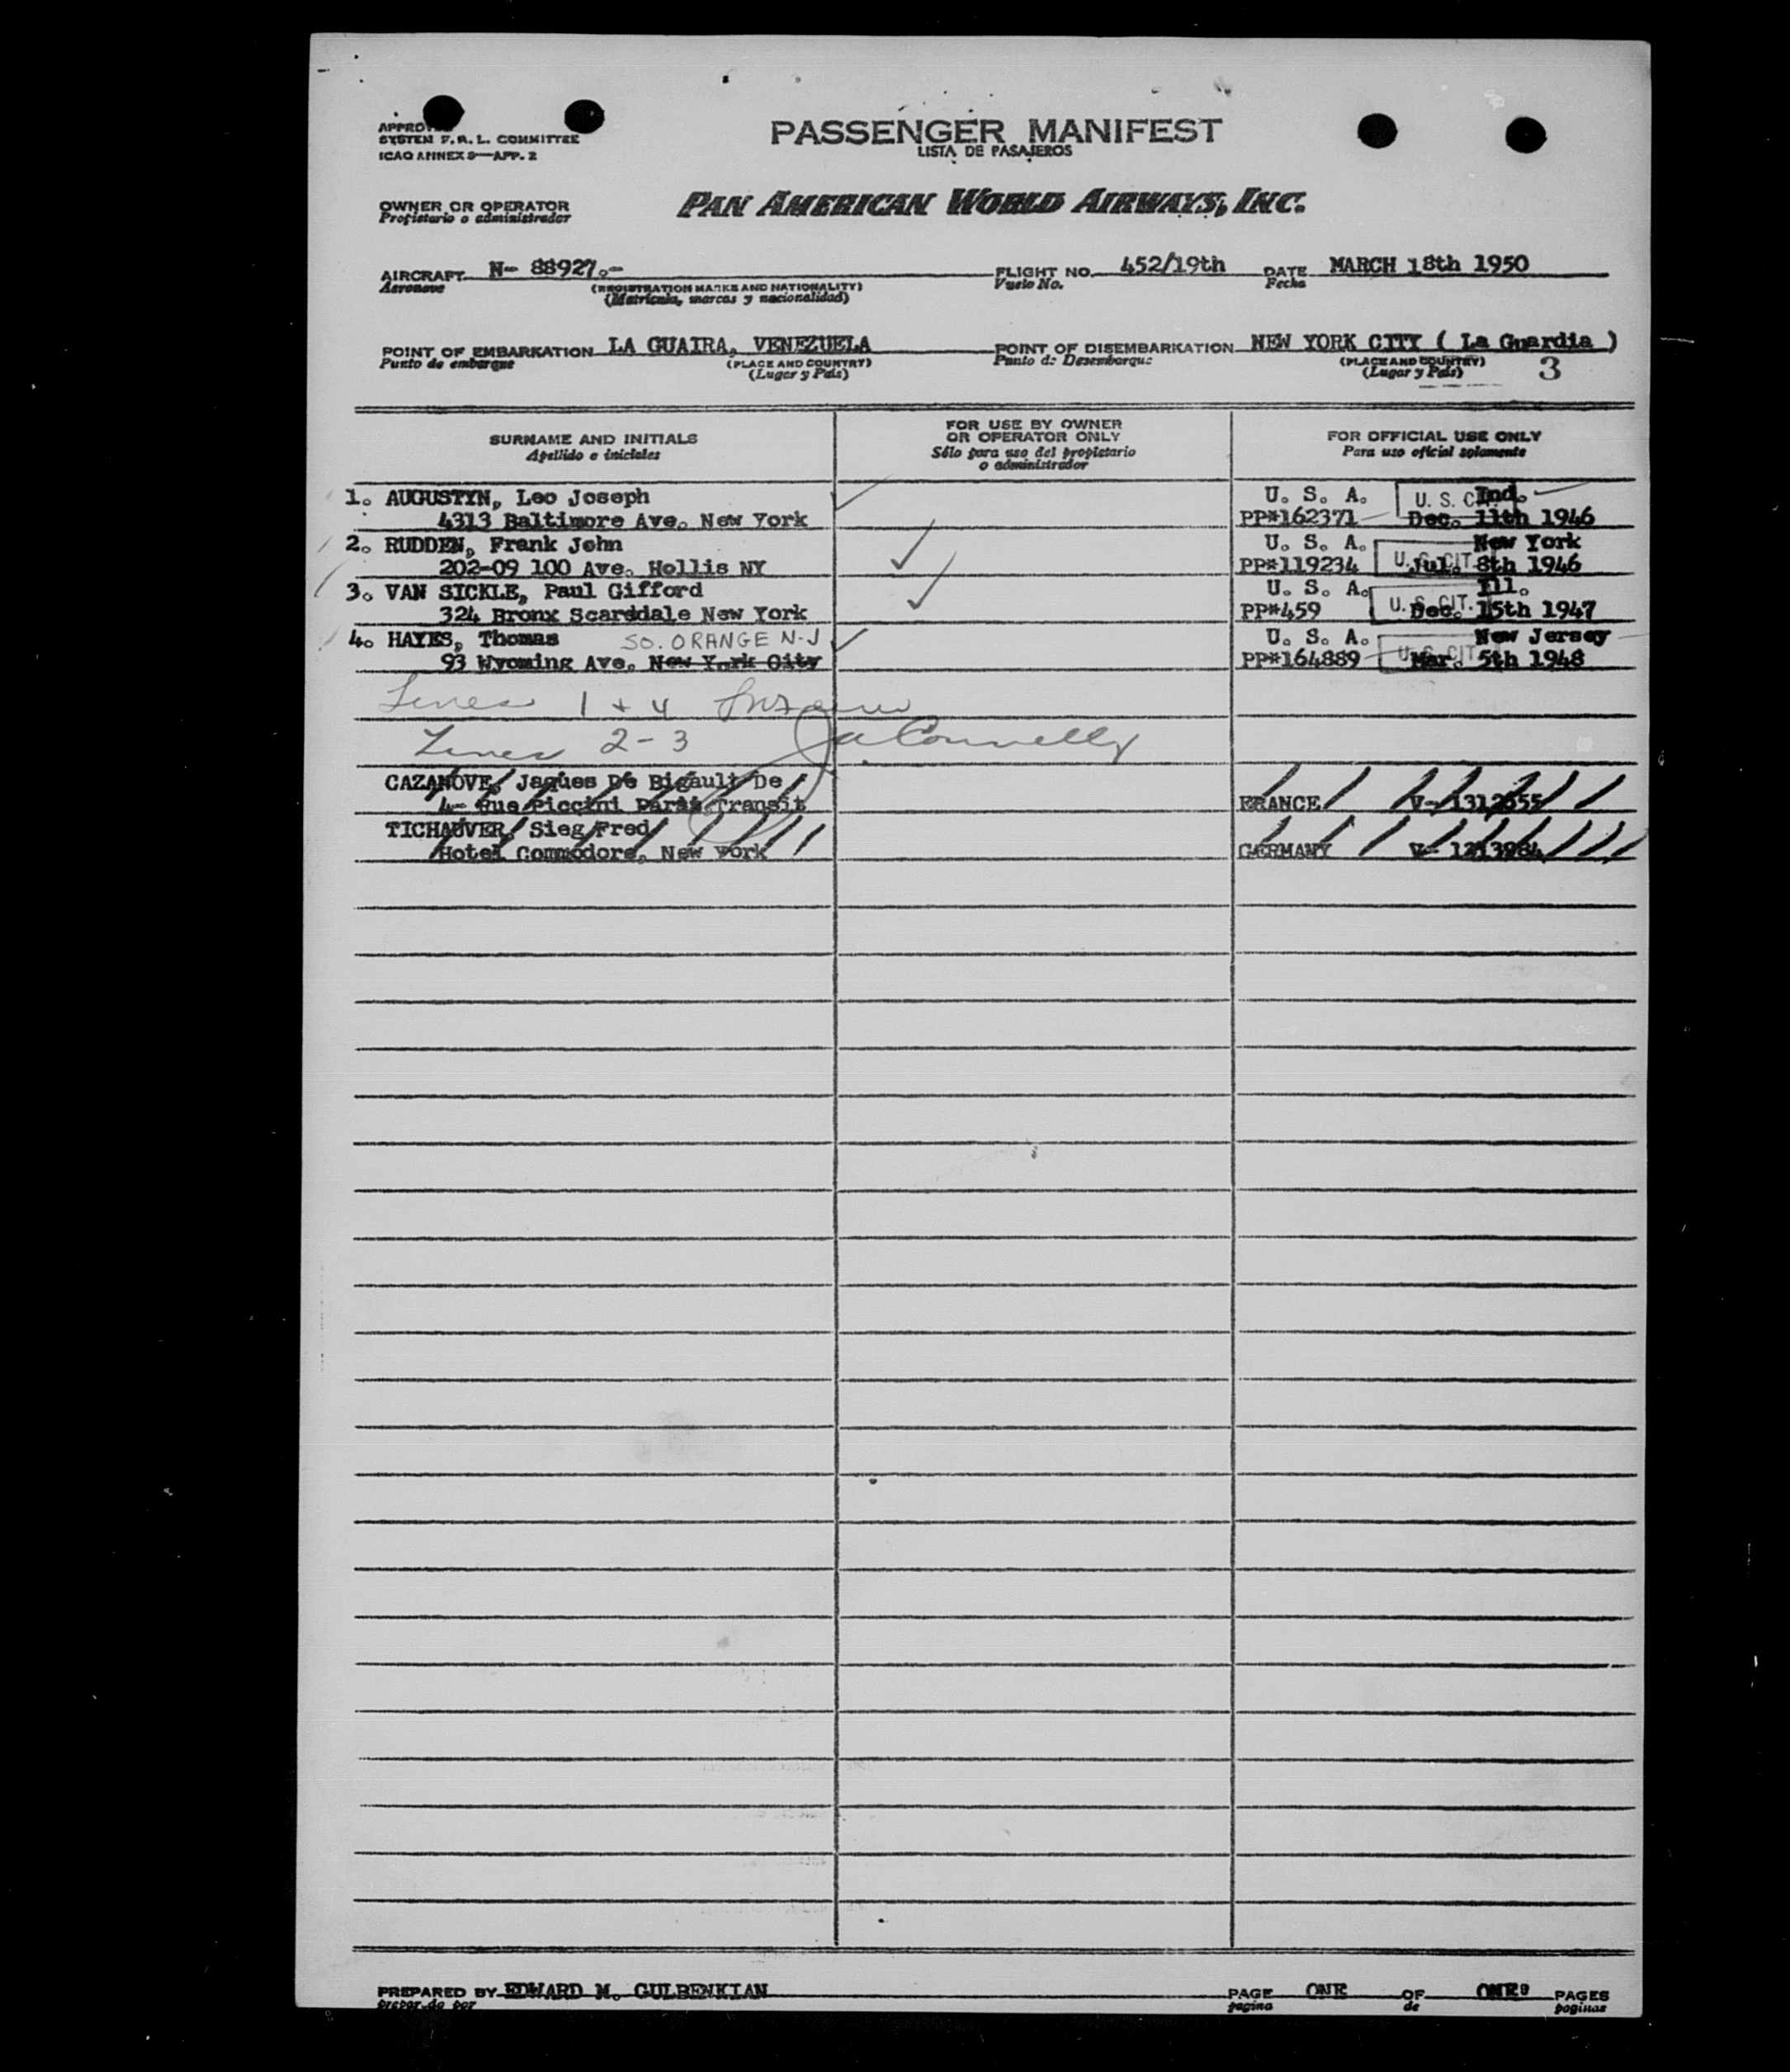 APPROVED
SYSTEM F. A. L. COMMITTEE
ICAO ANNEX 9—APP. 2
PASSENGER MANIFEST
LISTA DE PASAJEROS
OWNER OR OPERATOR
Propietario o administrador
PAN AMERICAN WORLD AIRWAYS, INC.
AIRCRAFT N- 88927.- FLIGHT NO. 452/19th DATE MARCH 18th 1950
Aeronave (REGISTRATION MARKS AND NATIONALITY) Vuelo No. Fecha
(Matrícula, marcas y nacionalidad)
POINT OF EMBARKATION LA GUAIRA, VENEZUELA POINT OF DISEMBARKATION NEW YORK CITY ( La Guardia )
Punto de embarque (PLACE AND COUNTRY) Punto de Desembarque (PLACE AND COUNTRY)
(Lugar y País) (Lugar y País) 3
SURNAME AND INITIALS FOR USE BY OWNER OR OPERATOR ONLY FOR OFFICIAL USE ONLY
Apellido e iniciales Sólo para uso del propietario o administrador Para uso oficial solamente
1. AUGUSTYN, Leo Joseph U. S. A. U. S. CIT. Ind.
4313 Baltimore Ave. New York PP#162371 Dec. 11th 1946
2. RUDDEN, Frank John U. S. A. New York
202-09 100 Ave. Hollis NY PP#119234 U. S. CIT. Jul. 8th 1946
3. VAN SICKLE, Paul Gifford U. S. A. Ill.
324 Bronx Scarsdale New York PP#459 U. S. CIT. Dec. 15th 1947
4. HAYES, Thomas SO. ORANGE N-J U. S. A. New Jersey
93 Wyoming Ave. New York City PP#164889 U. S. CIT. Mar. 5th 1948
Lines 1 + 4
Lines 2-3 JA Connelly
CAZANOVE, Jaques De Bigault De
4- Rue Piccini Paris Transit FRANCE V- 1312555
TICHAUVER, Sieg Fred
Hotel Commodore, New York GERMANY V- 1213984
PREPARED BY EDWARD M. GULBENKIAN PAGE ONE OF ONE PAGES
preparado por pagina de paginas